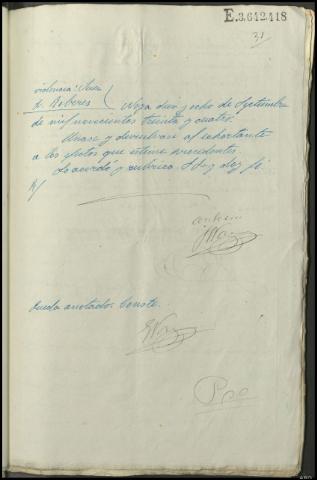 E.3.642.118
31
Providencia: Juez
Sr. Roberes } Noya diez y ocho de Septiembre
de mil novecientos treinta y cuatro.
Unase y devuelvase al exhortante
a los efectos que estime procedentes.
Lo acordó y rubrica S Sª y doy fe.
R/
ante mi
Queda anotado. Conste.